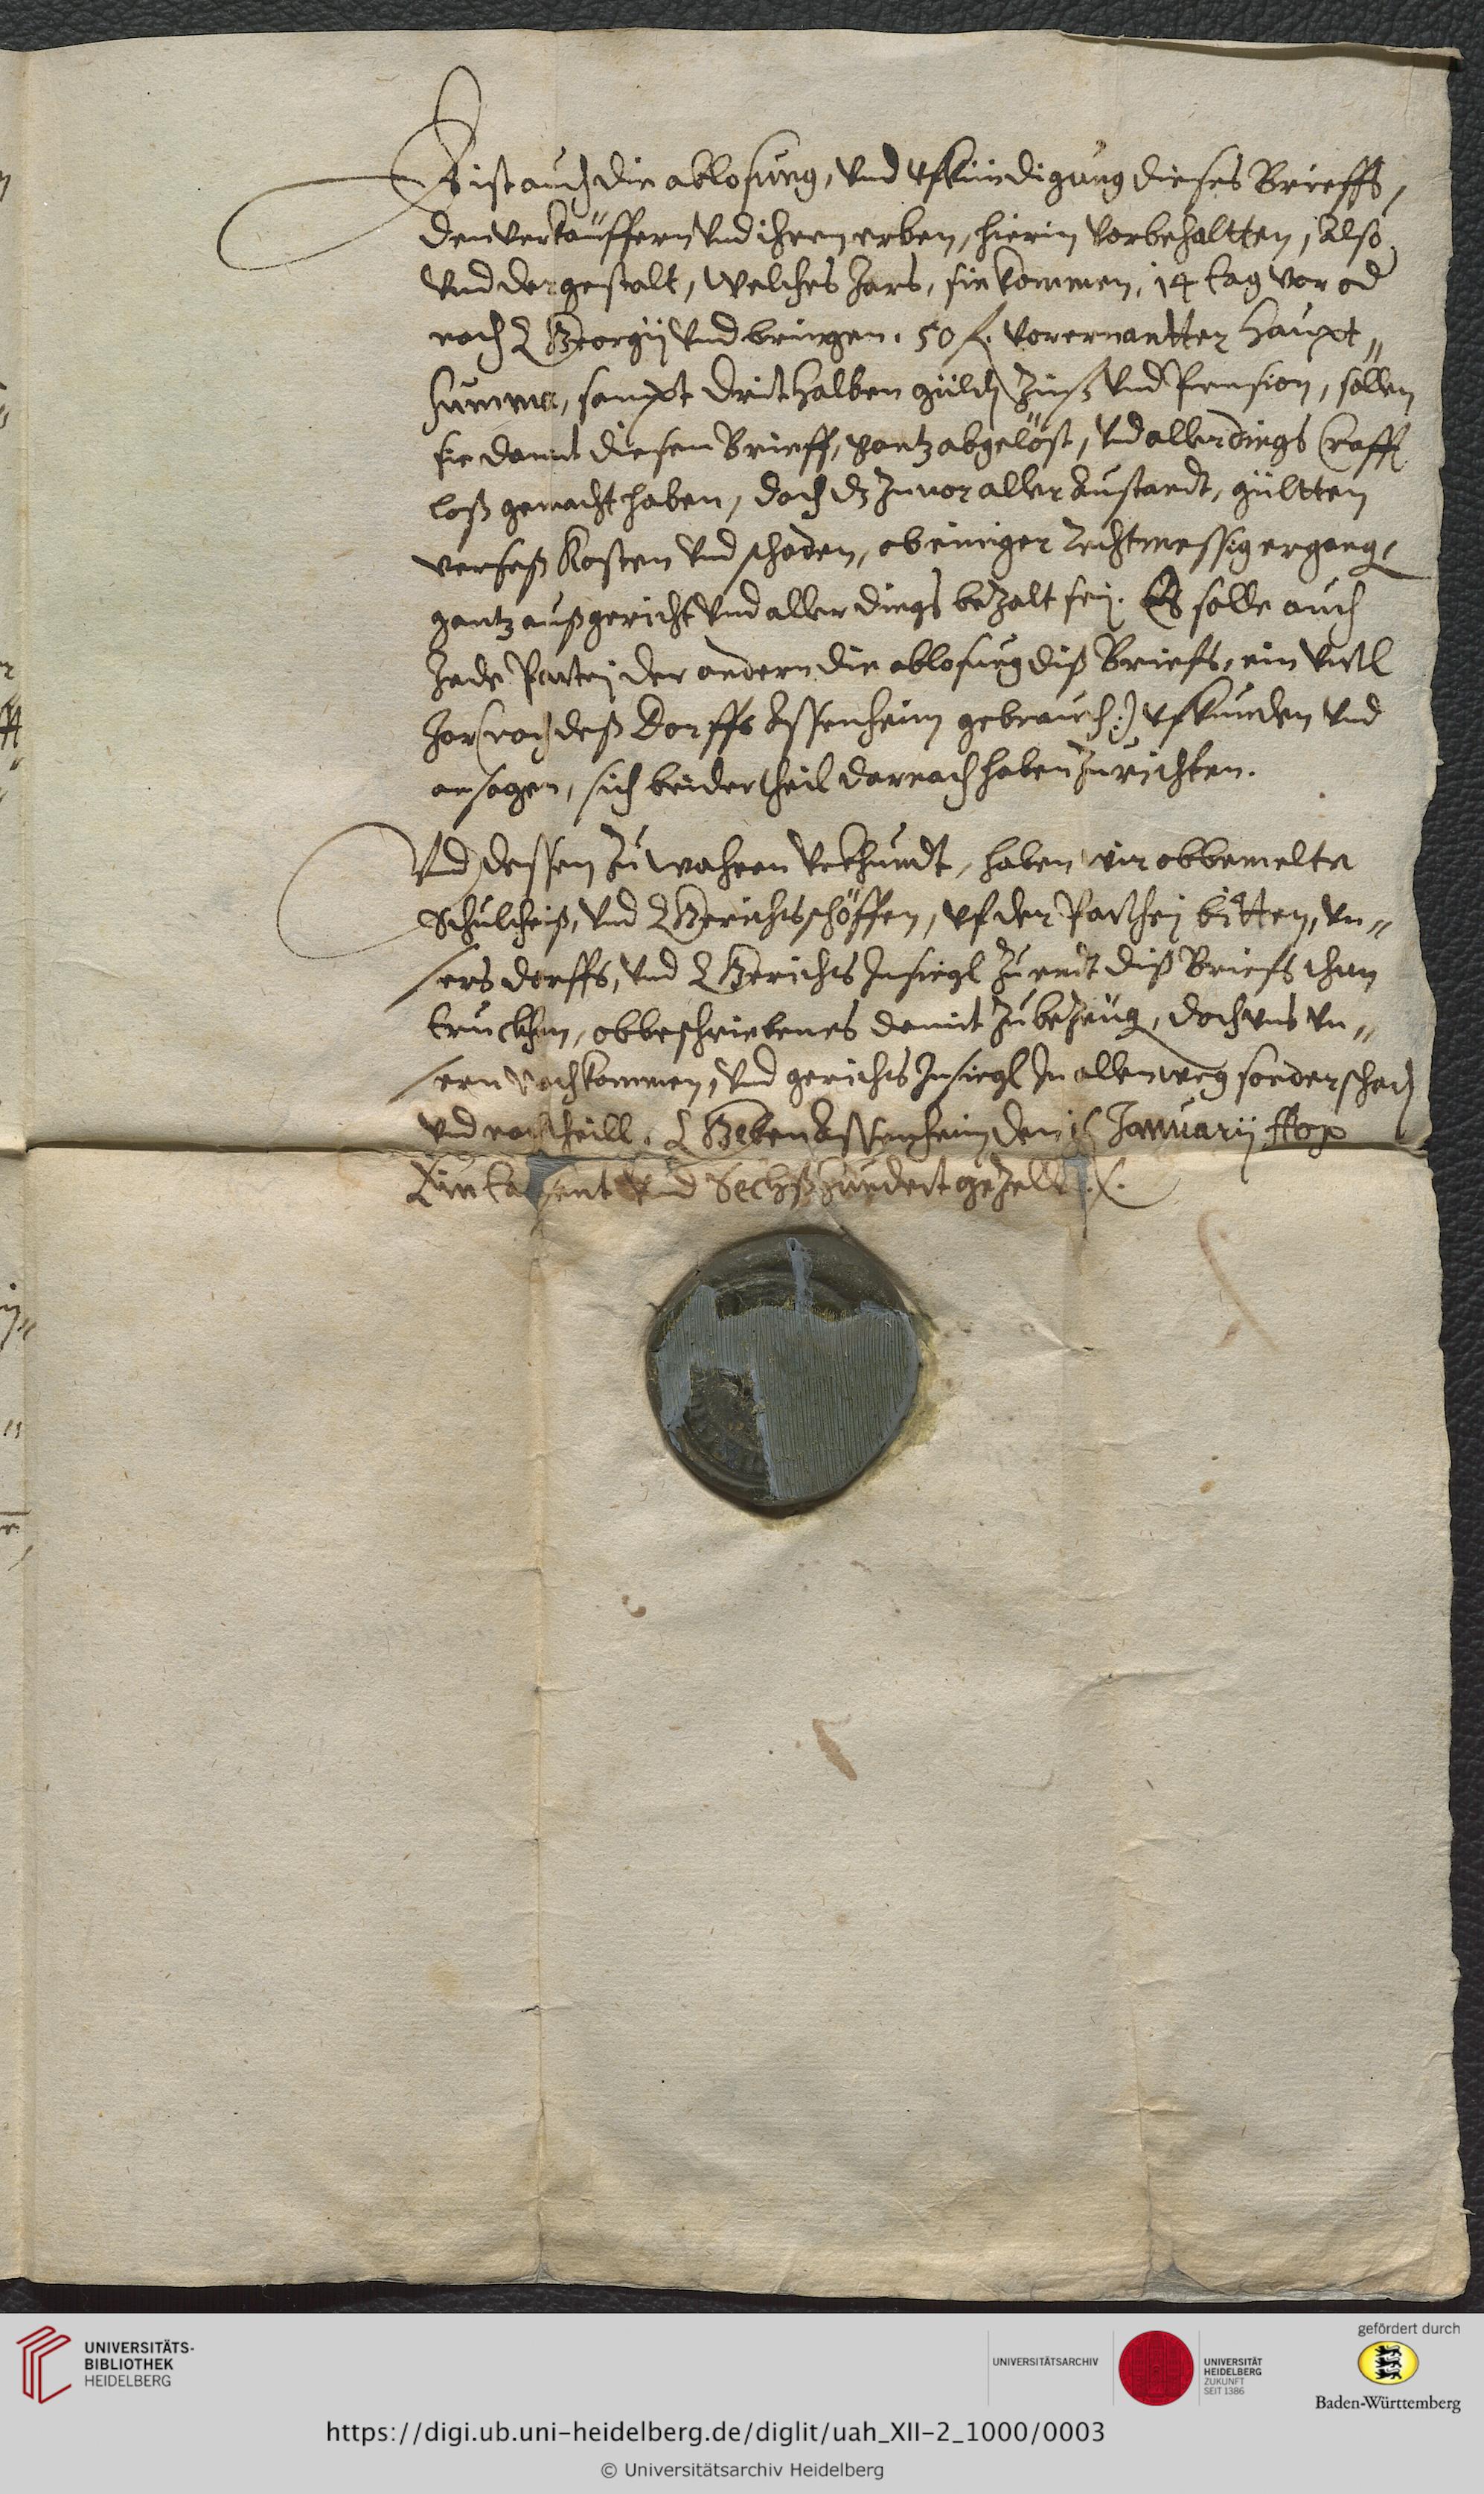 Es ist auch die ablosung, vnd vfkündigung dieses Brieffs,
den verkäuffern vnd ihren erben, hierin vorbehaltten, Also
vnd der gestalt, welches Jars, sie kommen, 14 tag vor od
nach Georgij vnd bringen. 50 f. vorernantter Haupt„
summa, sampt drithalben güld Zinß vnd Pension, sollen
sie damit diesen Brieff, gantz abgelöst, vnd allerdings crafft
loß gemacht haben, doch dz zuuor aller Außstandt, gültten
verseß Kosten vnd schaden, ob einiger rechtmessig ergang,
gantz außgericht vnd aller dings bezalt sey. Es solle auch
Jede Partey der andern die ablosung diß Briefs, ein virtl
Jar (nach deß Dorffs Assenheim gebrauch:) vfkunden vnd
ansagen, sich beidertheil darnach haben zurichten.
Vnd dessen zu wahren vrkhundt, haben wir obbemelte
Schultheiß, vnd Gerichtsschöffen, vf der Parthey bitten, vn„
sers dorffs, vnd Gerichts Insiegl zu endt diß Briefs thun
truckhen, obbeschriebenes damit zubezeug, doch vns vn„
sern nachkommen, vnd gerichts Insiegl In allen weg sonder schad
vnd nachtheill. Geben Assenheim den Januarij Aõ
Ein tausent vnd Sechßhundert gezelt.
UNIVERSITÄTS-
BIBLIOTHEK
HEIDELBERG
UNIVERSITÄTSARCHIV
UNIVERSITÄT
HEIDELBERG
ZUKUNFT
SEIT 1386
gefördert durch
Baden-Württemberg
https://digi.ub.uni-heidelberg.de/diglit/uah_XII-2_1000/0003
© Universitätsarchiv Heidelberg